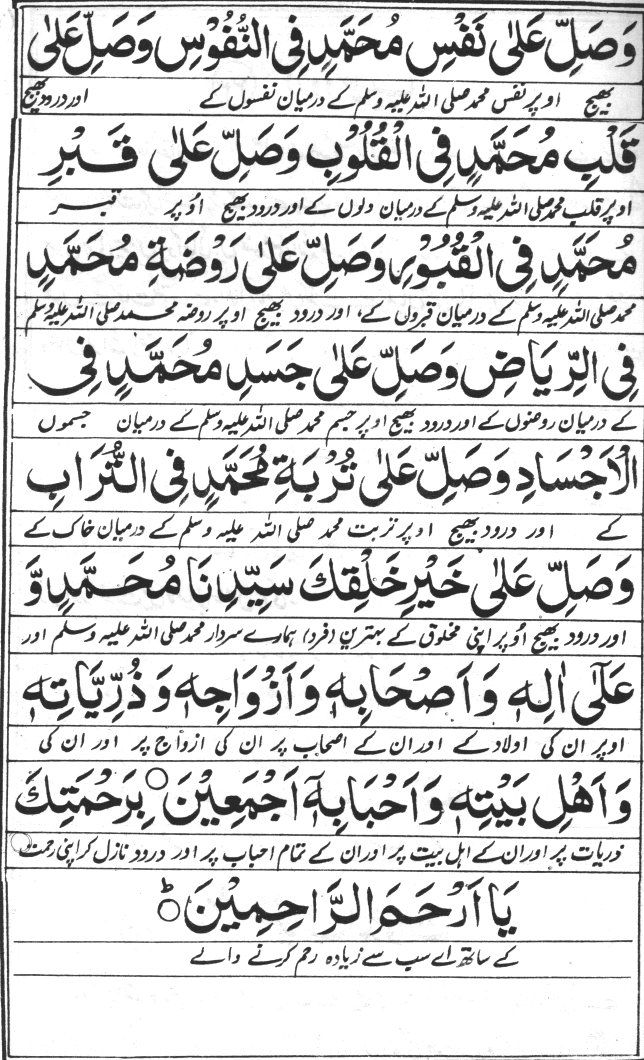 وَصَلِّ عَلٰى نَفْسِ مُحَمَّدٍ فِى النُّفُوْسِ وَصَلِّ عَلٰى
بھیج اوپر نفس محمد صلی اللہ علیہ وسلم کے درمیان نفسوں کے اور درود بھیج
قَلْبِ مُحَمَّدٍ فِى الْقُلُوْبِ وَصَلِّ عَلٰى قَبْرِ
اوپر قلب محمد صلی اللہ علیہ وسلم کے درمیان دلوں کے اور درود بھیج اوپر قبر
مُحَمَّدٍ فِى الْقُبُوْرِ وَصَلِّ عَلٰى رَوْضَةِ مُحَمَّدٍ
محمد صلی اللہ علیہ وسلم کے درمیان قبروں کے، اور درود بھیج اوپر روضہ محمد صلی اللہ علیہ وسلم
فِى الرِّيَاضِ وَصَلِّ عَلٰى جَسَدِ مُحَمَّدٍ فِى
کے درمیان روضوں کے اور درود بھیج اوپر جسم محمد صلی اللہ علیہ وسلم کے درمیان جسموں
الْاَجْسَادِ وَصَلِّ عَلٰى تُرْبَةِ مُحَمَّدٍ فِى التُّرَابِ
کے اور درود بھیج اوپر تربت محمد صلی اللہ علیہ وسلم کے درمیان خاک کے
وَصَلِّ عَلٰى خَيْرِ خَلْقِكَ سَيِّدِنَا مُحَمَّدٍ وَّ
اور درود بھیج اُوپر اپنی مخلوق کے بہترین (فرد) ہمارے سردار محمد صلی اللہ علیہ وسلم اور
عَلٰٓى اٰلِهٖ وَاَصْحَابِهٖ وَاَزْوَاجِهٖ وَذُرِّيَّاتِهٖ
اوپر ان کی اولاد کے اور ان کے اصحاب پر ان کی ازواج پر اور ان کی
وَاَهْلِ بَيْتِهٖ وَاَحْبَابِهٖٓ اَجْمَعِيْنَ ○ بِرَحْمَتِكَ
ذریات پر اور ان کے اہل بیت پر اور ان کے تمام احباب پر اور درود نازل کر اپنی رحمت
يَا اَرْحَمَ الرَّاحِمِيْنَ ○ؕ
کے ساتھ اے سب سے زیادہ رحم کرنے والے